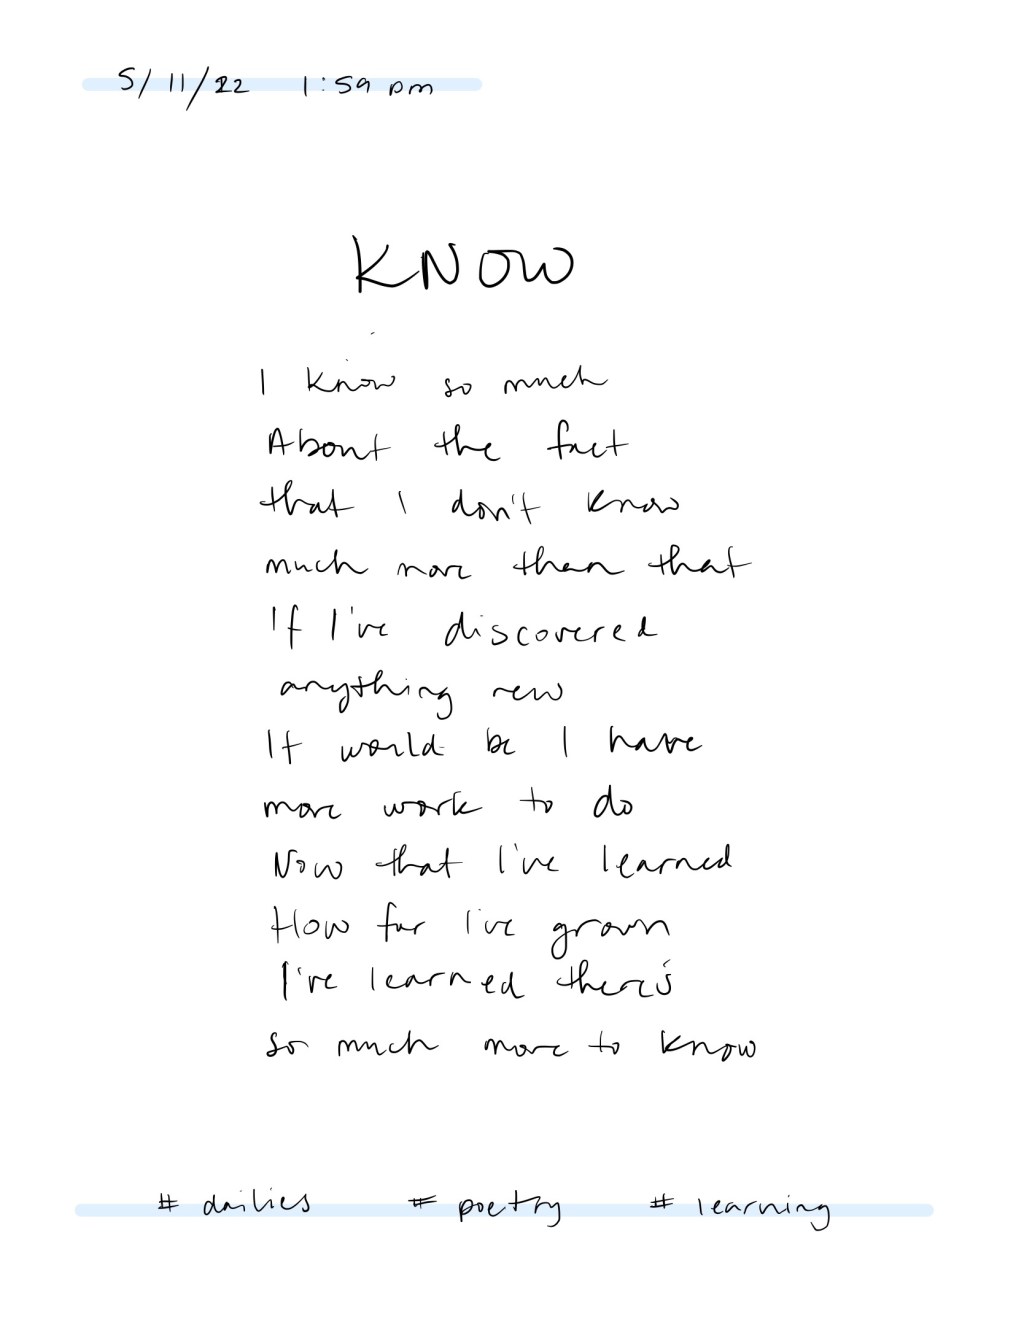 5/11/22 1:59 pm
KNOW
I know so much
About the fact
that I don't know
much more than that
If I've discovered
anything new
It would be I have
more work to do
Now that I've learned
How far I've grown
I've learned there's
so much more to know
# dailies # poetry # learning